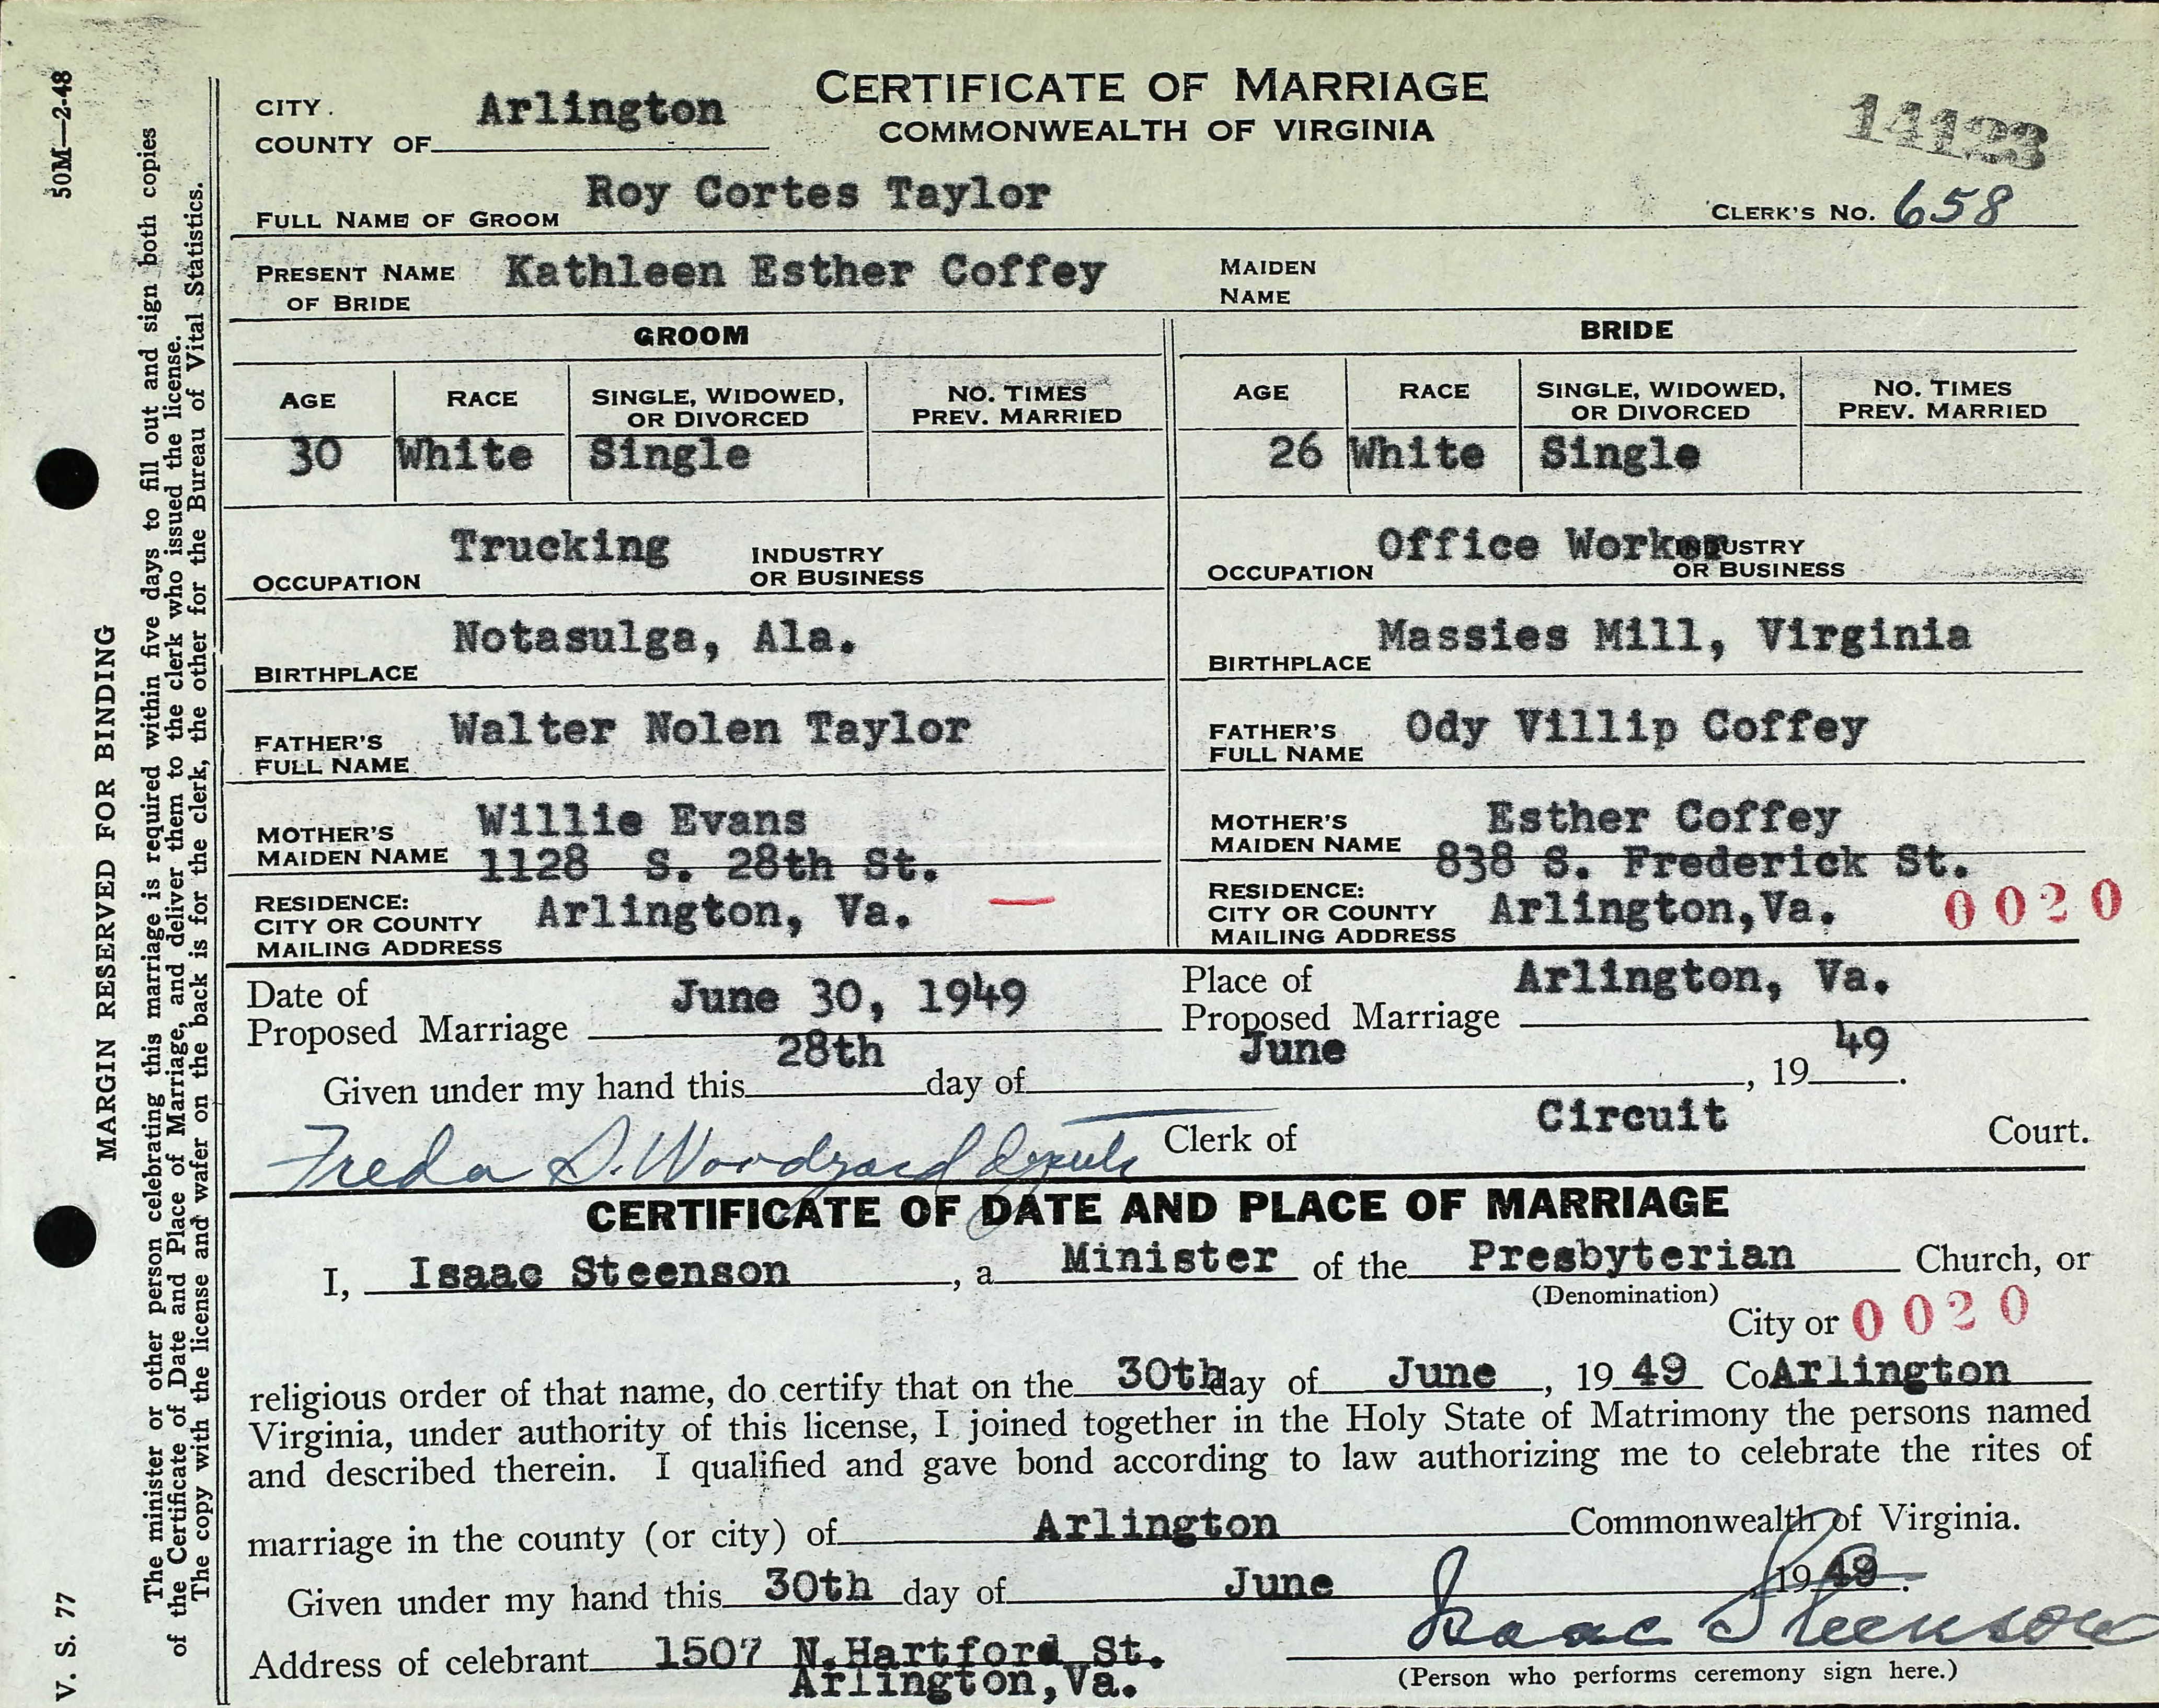 50M—2-48
MARGIN RESERVED FOR BINDING
V. S. 77
The minister or other person celebrating this marriage is required within five days to fill out and sign both copies
of the Certificate of Date and Place of Marriage, and deliver them to the clerk who issued the license.
The copy with the license and wafer on the back is for the clerk, the other for the Bureau of Vital Statistics.
CERTIFICATE OF MARRIAGE
COMMONWEALTH OF VIRGINIA
CITY
COUNTY OF Arlington
14123
FULL NAME OF GROOM Roy Cortes Taylor CLERK'S NO. 658
PRESENT NAME OF BRIDE Kathleen Esther Coffey MAIDEN NAME
GROOM BRIDE
AGE RACE SINGLE, WIDOWED, OR DIVORCED NO. TIMES PREV. MARRIED AGE RACE SINGLE, WIDOWED, OR DIVORCED NO. TIMES PREV. MARRIED
30 White Single 26 White Single
OCCUPATION Trucking INDUSTRY OR BUSINESS OCCUPATION Office Worker INDUSTRY OR BUSINESS
BIRTHPLACE Notasulga, Ala. BIRTHPLACE Massies Mill, Virginia
FATHER'S FULL NAME Walter Nolen Taylor FATHER'S FULL NAME Ody Villip Coffey
MOTHER'S MAIDEN NAME Willie Evans MOTHER'S MAIDEN NAME Esther Coffey
1128 S. 28th St. 838 S. Frederick St.
RESIDENCE: CITY OR COUNTY MAILING ADDRESS Arlington, Va. RESIDENCE: CITY OR COUNTY MAILING ADDRESS Arlington,Va. 0020
Date of Proposed Marriage June 30, 1949 Place of Proposed Marriage Arlington, Va.
Given under my hand this 28th day of June, 1949.
Freda S. Woodyard deputy Clerk of Circuit Court.
CERTIFICATE OF DATE AND PLACE OF MARRIAGE
I, Isaac Steenson, a Minister of the Presbyterian Church, or
(Denomination)
City or 0020
religious order of that name, do certify that on the 30th day of June, 1949 Co Arlington
Virginia, under authority of this license, I joined together in the Holy State of Matrimony the persons named
and described therein. I qualified and gave bond according to law authorizing me to celebrate the rites of
marriage in the county (or city) of Arlington Commonwealth of Virginia.
Given under my hand this 30th day of June 1949.
Isaac Steenson
Address of celebrant 1507 N.Hartford St.
Arlington,Va.
(Person who performs ceremony sign here.)